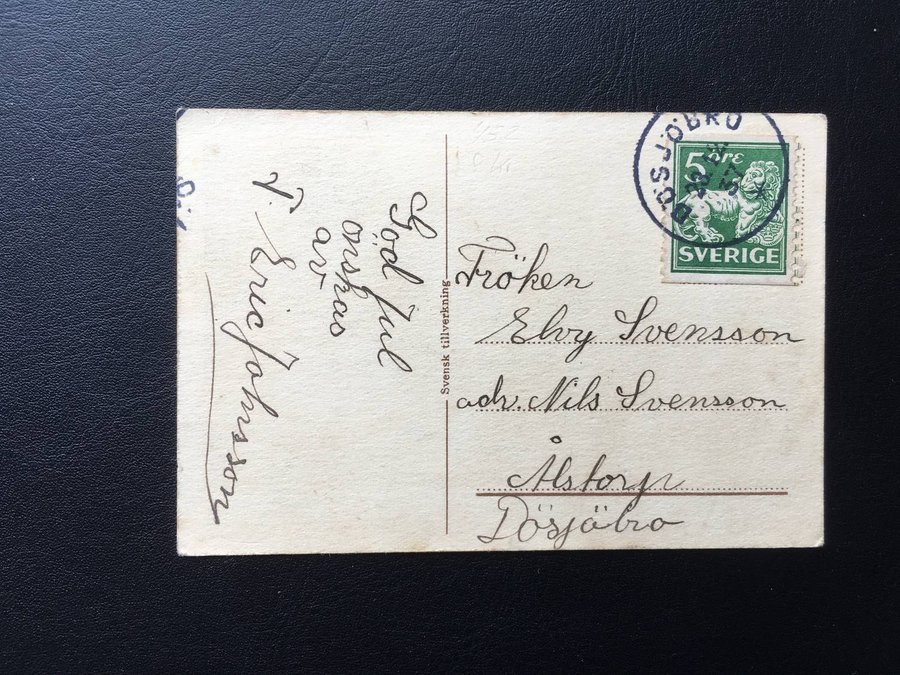 God jul
önskas
av
T. Eric Johnsson
Svensk tillverkning
DÖSJÖBRO
22 12
37
5 ÖRE
SVERIGE
Fröken
Elvy Svensson
adr. Nils Svensson
Ålstorp
Dösjöbro